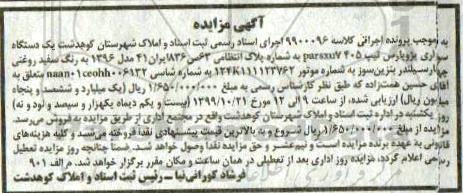 آگهی مزایده
به موجب پرونده اجرائی کلاسه ۹۹۰۰۰۹۶ اجرای اسناد رسمی ثبت اسناد و املاک شهرستان کوهدشت یک دستگاه
سواری پژوپارس تیپ parsxu۷ ۴۰۵ به شماره پلاک انتظامی ۶۲س۸۳۶ایران۴۱ مدل ۱۳۹۶ به رنگ سفید روغنی
چهارسیلندر بنزین‌سوز به شماره موتور ۱۲۴K۱۱۱۲۳۷۶۲ به شماره شاسی naan۰۱ceohh۰۰۶۱۳۲ متعلق به
آقای حسین همت‌زاده که طبق نظر کارشناس رسمی به مبلغ ۱/۶۵۰/۰۰۰/۰۰۰ ریال (یک میلیارد و ششصد و پنجاه
میلیون ریال) ارزیابی شده، از ساعت ۹ الی ۱۲ مورخ ۱۳۹۹/۱۰/۲۱ (بیست و یکم دیماه یکهزار و سیصد و نود و نه)
روز یکشنبه در اداره ثبت اسناد و املاک شهرستان کوهدشت واقع در مجتمع اداری از طریق مزایده به فروش می‌رسد.
مزایده از مبلغ ۱/۶۵۰/۰۰۰/۰۰۰ ریال شروع و به بالاترین قیمت پیشنهادی نقدا فروخته می‌شود و کلیه هزینه‌های
قانونی به عهده برنده مزایده است و نیم‌عشر و حق مزایده نقدا وصول خواهد شد. ضمنا چنانچه روز مزایده تعطیل
رسمی اعلام گردد، مزایده روز اداری بعد از تعطیلی در همان ساعت و مکان مقرر برگزار خواهد شد. م الف ۹۰۱
فرشاد گورانی‌نیا - رئیس ثبت اسناد و املاک کوهدشت